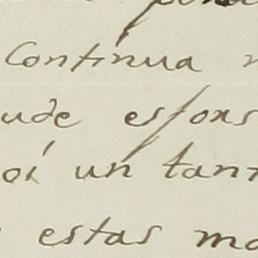 Continua
ude esfors
oi un tant
estas ma